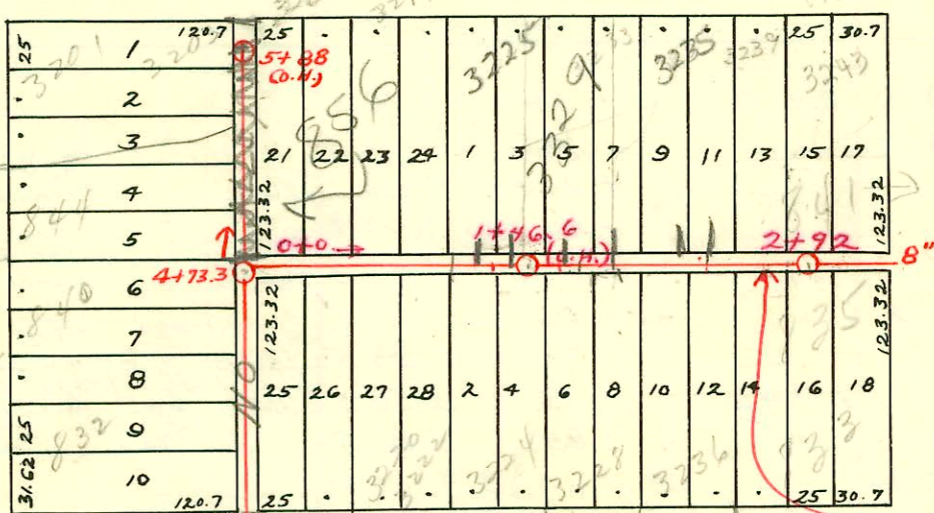 25 1 120.7
3201
2
3
4
844
5
6
840
7
8
25 9
832
31.62 10 120.7
5+88
(D.H.)
856
25 3225 3235 3239 25 30.7
3243
3229
21 22 23 24 1 3 5 7 9 11 13 15 17
123.32 841 123.32
0+0 → 1+46.6 2+92
(D.H.)
4+73.3 8"
123.32 835 123.32
NO
25 26 27 28 2 4 6 8 10 12 14 16 18
833
3220 3222 3224 3228 3236
25 25 30.7